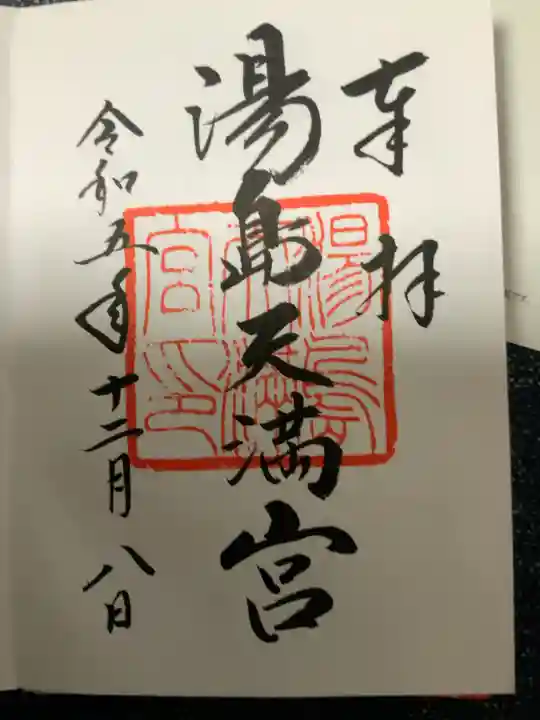 奉拝
湯島天満宮
湯島天満宮印
令和五年十二月八日